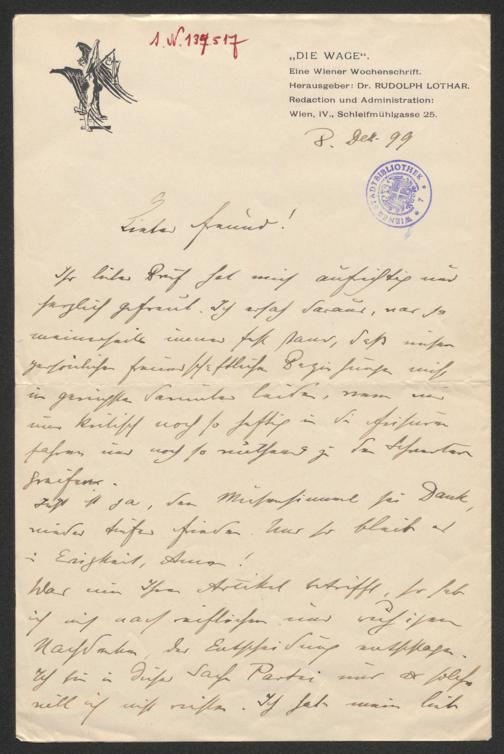 I. N. 137517
„DIE WAGE“.
Eine Wiener Wochenschrift.
Herausgeber: Dr. RUDOLPH LOTHAR.
Redaction und Administration:
Wien, IV., Schleifmühlgasse 25.
8. Dez. 99
WIENER STADTBIBLIOTHEK * 7 *
Lieber Freund!
Ihr lieber Brief hat mich aufrichtig und
herzlich gefreut. Ich ersah daraus, was ja
meinerseits immer fest stand, daß unsere
persönlichen freundschaftlichen Beziehungen nicht
im geringsten darunter leiden, wenn wir
uns kritisch noch so heftig in die
fahren und noch so wüthend zu den Schwertern
greifen.
Jetzt ist ja, dem Musenhimmel sei Dank,
wieder tiefer Frieden. Und so bleib es
in Ewigkeit, Amen!
Was nun Ihren Artikel betrifft, so hab
ich mich nach reiflichem und ruhigem
Nachdenken, der Entscheidung entschlagen.
Ich bin in dieser Sache Partei und als solche
will ich nicht richten. Ich habe meinen lieben